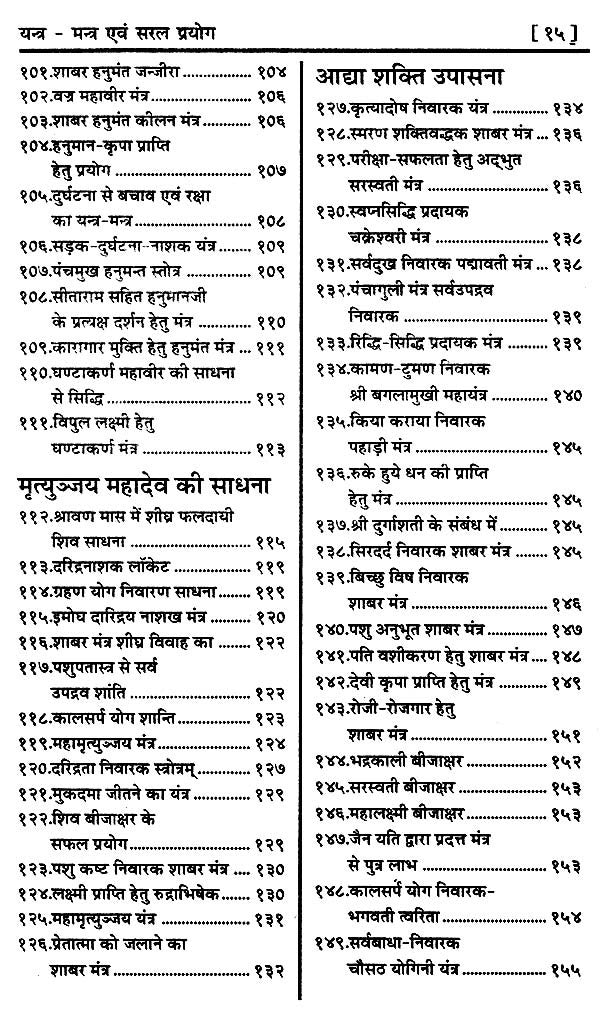 यन्त्र - मन्त्र एवं सरल प्रयोग [ १५ ]
१०१.शाबर हनुमंत जन्जीरा .................. १०४
१०२.वज्र महावीर मंत्र .................. १०६
१०३.शाबर हनुमंत कीलन मंत्र ............ १०६
१०४.हनुमान-कृपा प्राप्ति
हेतु प्रयोग ........................ १०७
१०५.दुर्घटना से बचाव एवं रक्षा
का यन्त्र-मन्त्र .................. १०८
१०६.सड़क-दुर्घटना-नाशक यंत्र....... १०९
१०७.पंचमुख हनुमन्त स्तोत्र ............ १०९
१०८.सीताराम सहित हनुमानजी
के प्रत्यक्ष दर्शन हेतु मंत्र ............ ११०
१०९.कारागार मुक्ति हेतु हनुमंत मंत्र ... १११
११०.घण्टाकर्ण महावीर की साधना
से सिद्धि ........................ ११२
१११.विपुल लक्ष्मी हेतु
घण्टाकर्ण मंत्र .................. ११३
मृत्युञ्जय महादेव की साधना
११२.श्रावण मास में शीघ्र फलदायी
शिव साधना .................. ११५
११३.दरिद्रनाशक लॉकेट ............ ११९
११४.ग्रहण योग निवारण साधना........ ११९
११५.इमोघ दारिद्रय नाशख मंत्र ........ १२०
११६.शाबर मंत्र शीघ्र विवाह का ........ १२२
११७.पशुपतास्त्र से सर्व
उपद्रव शांति .................. १२२
११८.कालसर्प योग शान्ति............ १२३
११९.महामृत्युञ्जय मंत्र............ १२४
१२०.दरिद्रता निवारक स्त्रोत्रम् ........ १२७
१२१.मुकदमा जीतने का यंत्र ........ १२९
१२२.शिव बीजाक्षर के
सफल प्रयोग.................. १२९
१२३.पशु कष्ट निवारक शाबर मंत्र .... १३०
१२४.लक्ष्मी प्राप्ति हेतु रुद्राभिषेक...... १३०
१२५.महामृत्युञ्जय यंत्र ............ १३१
१२६.प्रेतात्मा को जलाने का
शाबर मंत्र .................. १३२
आद्या शक्ति उपासना
१२७.कृत्यादोष निवारक यंत्र ............ १३४
१२८.स्मरण शक्तिवद्धक शाबर मंत्र ... १३६
१२९.परीक्षा-सफलता हेतु अद्भुत
सरस्वती मंत्र .................. १३६
१३०.स्वप्नसिद्धि प्रदायक
चक्रेश्वरी मंत्र .................. १३८
१३१.सर्वदुख निवारक पद्मावती मंत्र ... १३८
१३२.पंचागुली मंत्र सर्वउपद्रव
निवारक .................. १३९
१३३.रिद्धि-सिद्धि प्रदायक मंत्र ........ १३९
१३४.कामण-टुमण निवारक
श्री बगलामुखी महायंत्र............ १४०
१३५.किया कराया निवारक
पहाड़ी मंत्र .................. १४५
१३६.रुके हुये धन की प्राप्ति
हेतु मंत्र .................. १४५
१३७.श्री दुर्गाशती के संबंध में ........ १४५
१३८.सिरदर्द निवारक शाबर मंत्र ...... १४५
१३९.बिच्छु विष निवारक
शाबर मंत्र .................. १४६
१४०.पशु अनुभूत शाबर मंत्र ............ १४७
१४१.पति वशीकरण हेतु शाबर मंत्र .... १४८
१४२.देवी कृपा प्राप्ति हेतु मंत्र ........ १४९
१४३.रोजी-रोजगार हेतु
शाबर मंत्र .................. १५१
१४४.भद्रकाली बीजाक्षर ............ १५२
१४५.सरस्वती बीजाक्षर ............ १५३
१४६.महालक्ष्मी बीजाक्षर............ १५३
१४७.जैन यति द्वारा प्रदत्त मंत्र
से पुत्र लाभ .................. १५३
१४८.कालसर्प योग निवारक-
भगवती त्वरिता .................. १५४
१४९.सर्वबाधा-निवारक
चौसठ योगिनी यंत्र............ १५५